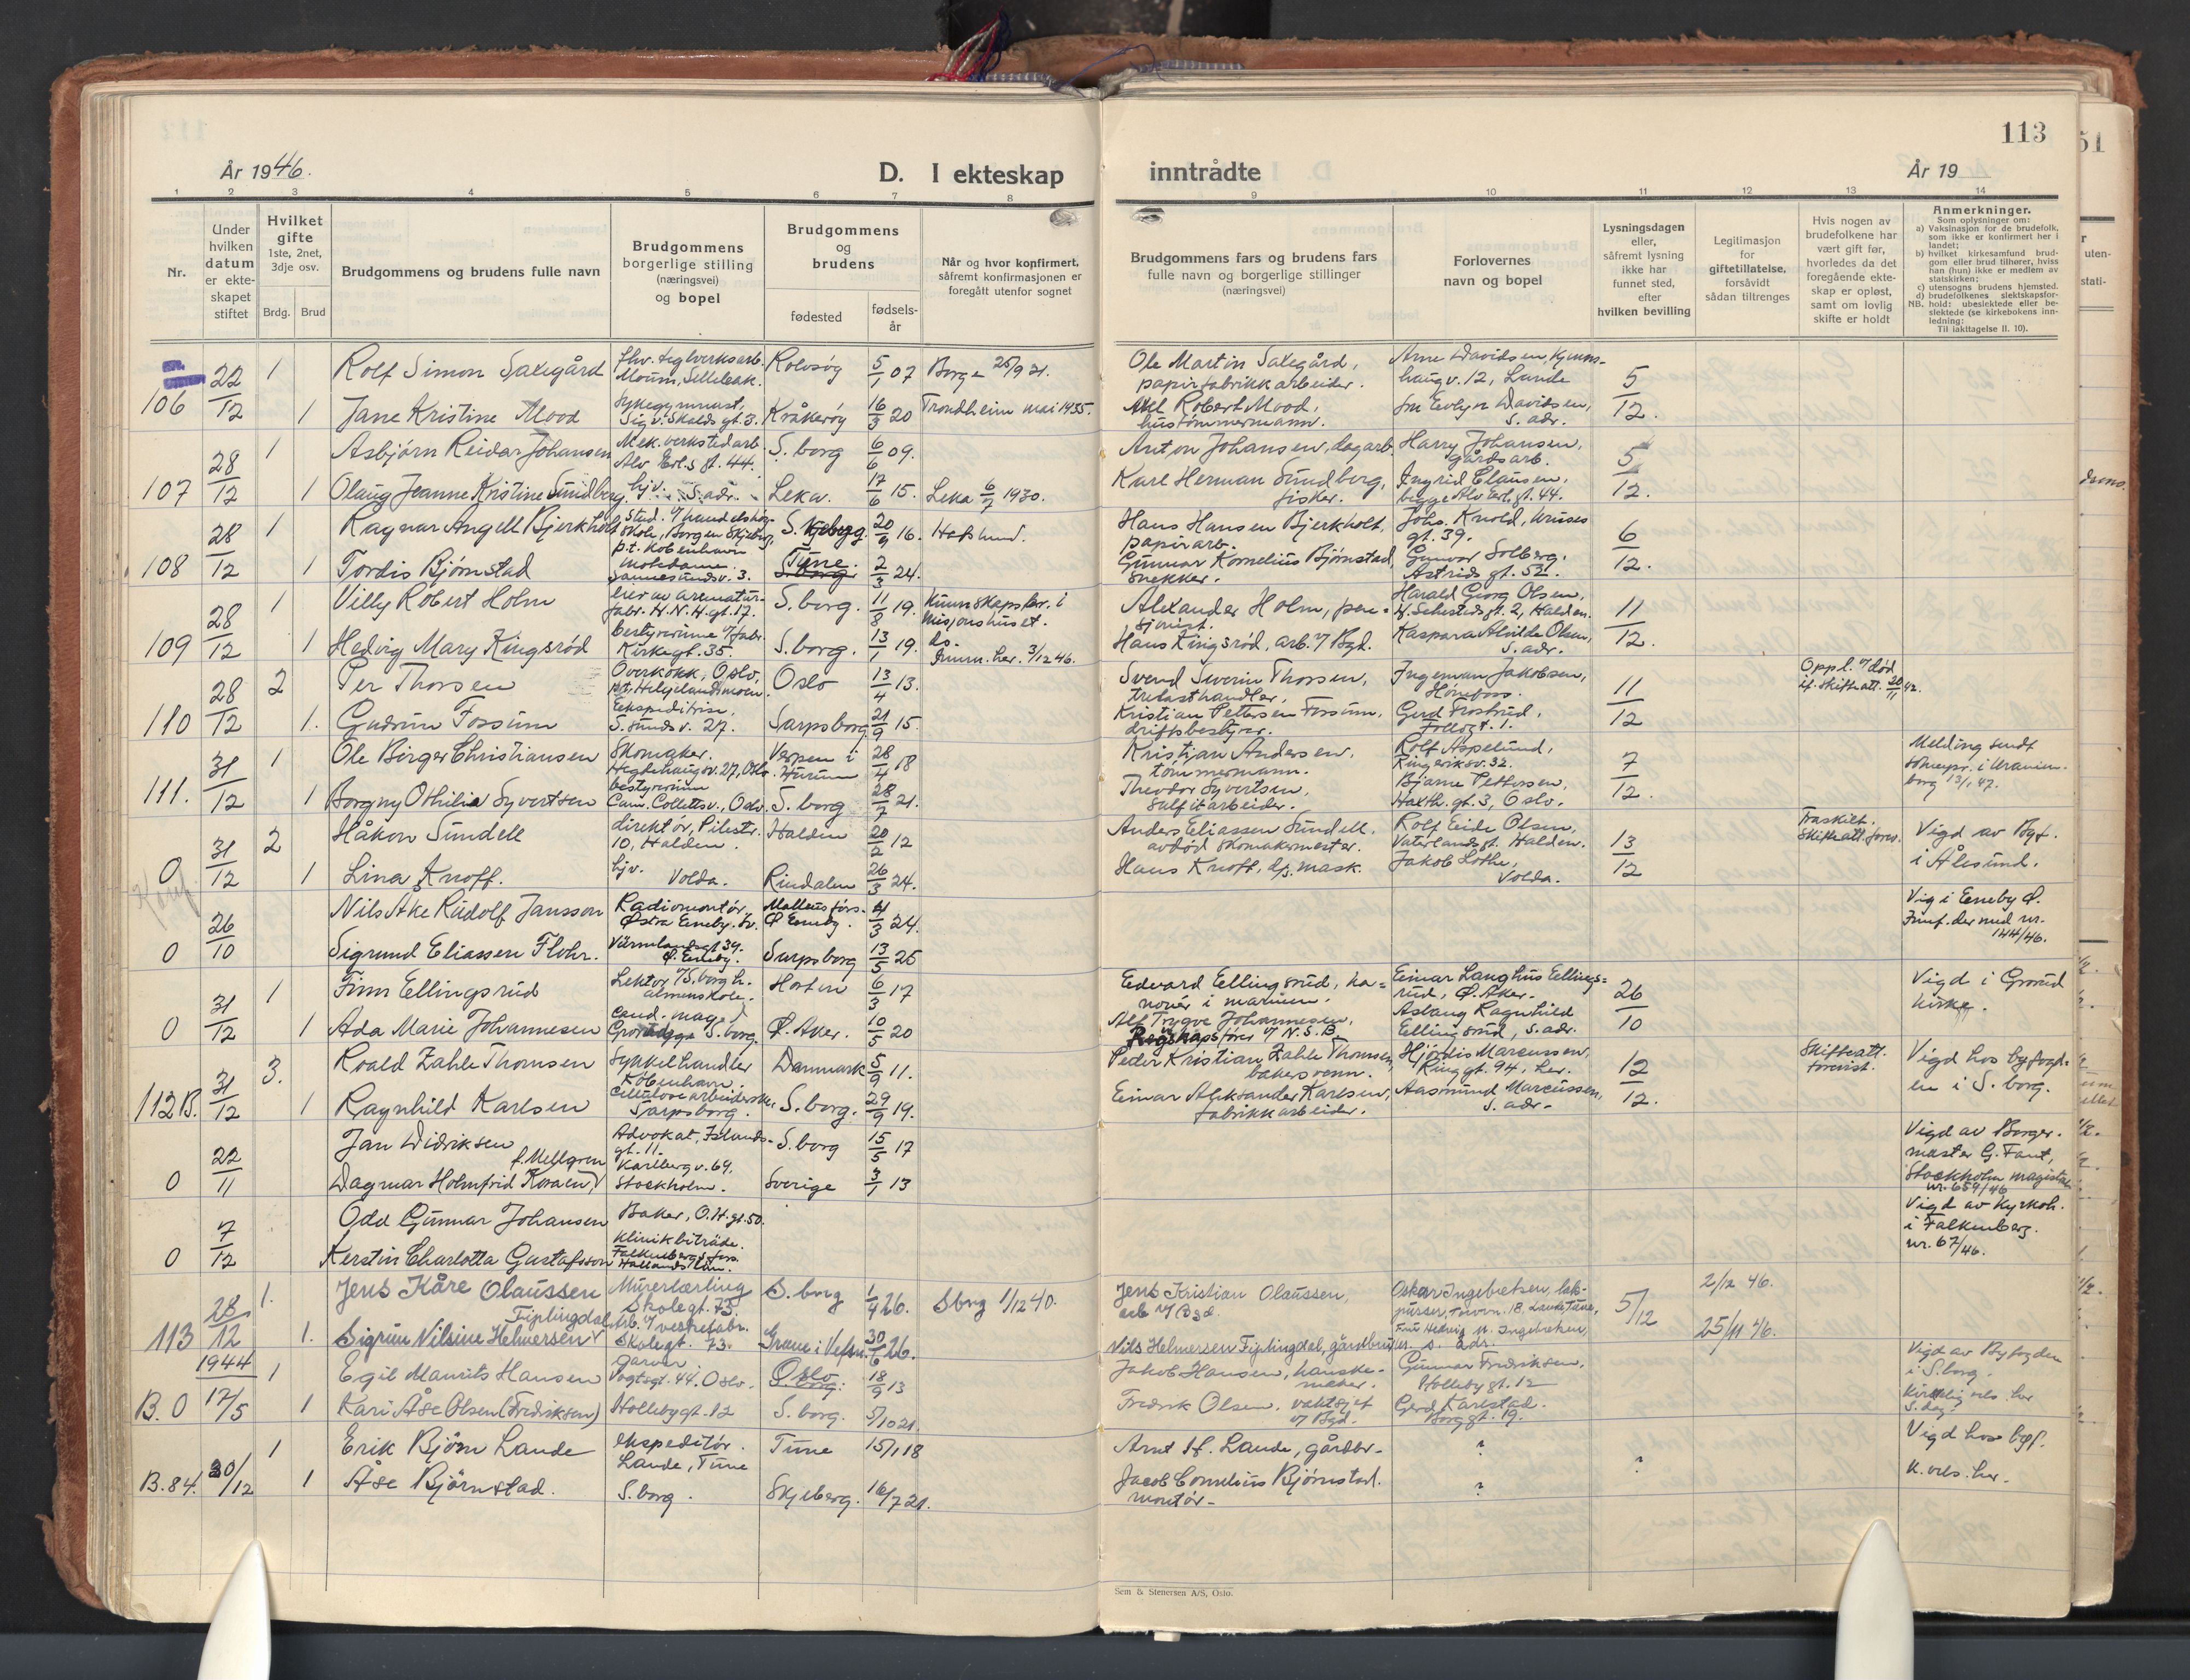 113
51
År 1946.
D. I ekteskap
inntrådte
År 19
1 2 3 4 5 6 7 8 9 10 11 12 13 14
Nr.
Under hvilken datum er ekte-skapet stiftet
Hvilket gifte
1ste, 2net, 3dje osv.
Brdg. Brud
Brudgommens og brudens fulle navn
Brudgommens borgerlige stilling (næringsvei) og bopel
Brudgommens og brudens
fødested
fødsels-år
Når og hvor konfirmert, såfremt konfirmasjonen er foregått utenfor sognet
Brudgommens fars og brudens fars fulle navn og borgerlige stillinger (næringsvei)
Forlovernes navn og bopel
Lysningsdagen eller, såfremt lysning ikke har funnet sted, efter hvilken bevilling
Legitimasjon for giftetillatelse, forsåvidt sådan tiltrenges
Hvis nogen av brudefolkene har vært gift før, hvorledes da det foregående ekte-skap er opløst, samt om lovlig skifte er holdt
Anmerkninger.
Som oplysninger om:
a) Vaksinasjon for de brudefolk, som ikke er konfirmert her i landet;
b) hvilket kirkesamfund brud-gom eller brud tilhører, hviss han (hun) ikke er medlem av statskirken;
c) utensogns brudens hjemsted.
d) brudefolkenes slektskapsfor-hold: ubeslektede eller be-slektede (se kirkebokens inn-ledning:
NB. Til iakttagelse II. 10).
106 22/12 1 Rolf Simon Saxegård
fhv. teglverksarb. Moum, Selebak.
Rolvsøy 5/1 07 Borge 25/9 21.
Ole Martin Saxegård, papirfabrikkarbeider.
Arne Davidsen, haugv. 12, Lande
5/12
1 Jane Kristine Mood
Sykegymnast, Sigv. Skalds gt. 3.
Kråkerøy 16/3 20 Trondheim mai 1935.
Axel Robert Mood, hustømmermann.
fru Evelyn Davidsen, s. adr.
107 28/12 1 Asbjørn Reidar Johansen
Mek. verkstedarb. Alv Erl.s gt. 44.
S. borg 6/6 09.
Anton Johansen, dagarb.
Harry Johansen, gårdsarb.
5/12.
1 Olaug Jeanne Kristine Sundberg
hjv. S. adr.
Leka. 17/6 15. Leka 6/7 1930.
Karl Herman Sundberg, fisker.
Ingrid Clausen, begge Alv Erl. gt. 44.
108 28/12 1 Ragnar Angell Bjerkholt
Stud. v/ handelshøg-skole, Borgen Skjeberg, p.t. København
S. Skjeberg. 20/9 16. Hafslund.
Hans Hansen Bjerkholt, papirarb.
Johs. Knold, Kruses gt. 39.
6/12.
1 Tordis Bjørnstad
Sannesundsv. 3.
Tune. S. borg 2/3 24.
Gunnar Kornelius Bjørnstad, snekker.
Gunvor Solberg, Astrids gt. 52.
109 28/12 1 Villy Robert Holm
eier av armatur-fabr. H.N.H.gt. 17.
S. borg. 11/8 19. Kunnskapsbr. i Misjonshuset.
Alexander Holm, pen-sjonist.
Harald Georg Olsen, H. Sehesteds gt. 2, Halden.
11/12.
1 Hedvig Mary Kingsrød
bestyrerinne v/ fabr. Kirkegt. 35.
S. borg. 13/1 19. do. Imm. her. 3/12 46.
Hans Kingsrød, arb. v/ Bgd.
Kaspara Alvilde Olsen, S. adr.
110 28/12 2 Per Thorsen
Overkokk, Oslo, p.t. Helgelandsmoen.
Oslo 13/4 13.
Svend Severin Thorsen, trelasthandler,
Ingeman Jakobsen, Hønefoss.
11/12
Oppl. v/ død if. skifteatt. 20/11 42.
1. Gudrun Fossum
Ekspeditrise, S. sunds v. 27.
Sarpsborg 21/9 15.
Kristian Pettersen Fossum, driftsbestyrer.
Gerd Frostrud, Folloggt. 1.
111. 31/12 1 Ole Birger Christiansen
Skomaker. Hegdehaugsv. 27, Oslo.
Verpen i Hurum 28/4 18
Kristian Andersen, tømmermann.
Rolf Aspelund, Ringeriksv. 32.
7/12.
Melding sendt soknepr. i Uranien-borg 13/1. 47.
1 Borgny Othilie Syvertsen
bestyrerinne Cam. Colletts v., Oslo.
S. borg 28/7 21.
Theodor Syvertsen, sulfitarbeider.
Bjarne Pettersen, Haxth. gt. 3, Oslo.
0 31/12 2 Håkon Sundell
direktør, Pilestr. 10, Halden.
Halden 20/2 12
Anders Eliassen Sundell, avdød skomakermester.
Rolf Eide Olsen, Vaterlandsgt. Halden.
13/12
Fraskilt. Skifteatt. forev.
Vigd av Byf. i Ålesund.
1 Lina Knoff.
hjv. Volda.
Rindalen 26/3 24.
Hans Knoff, d/s. mask.
Jakob Lothe, Volda.
0 26/10 Nils Åke Rudolf Jansson
Radiomontör, Østra Emeby. Sv.
Ø Emeby. 21/3 24.
Vig i Emeby Ø. Innf. der med nr. 144/46.
Sigrund Eliassen Flohr.
Värmlandsgt 39. Ø. Emeby.
Sarpsborg 13/5 25
0 31/12 1 Finn Ellingsrud
Lektor v/ S. borg h. almenskole.
Horten 6/3 17
Edvard Ellingsrud, ka-nonér i marinen.
Einar Langhus Ellings-rud, Ø. Aker.
26/10
Vigd i Grorud kirke.
1 Ada Marie Johannesen
cand. mag. S. borg.
Ø. Aker. 10/5 20
Alf Trygve Johannesen, Regnskapsfører v/ N.S.B.
Aslaug Ragnhild Ellingsrud, s. adr.
112 B. 31/12 3. Roald Zahle Thomsen
Sykkelhandler København.
Danmark 5/9 11.
Peder Kristian Zahle Thomsen, bakersvenn.
Hjördis Marcussen, Ringgt. 94, her.
12/12.
Skifteatt. forevist.
Vigd hos byfogd-en i S. borg.
1 Ragnhild Karlsen
Cellulosearbeiderske, Sarpsborg.
S. borg. 29/9 19.
Einar Aleksander Karlsen, fabrikkarbeider.
Aasmund Marcussen, S. adr.
0 22/11 Jan Didriksen
Advokat, Islands-gt. 11.
S. borg 15/5 17
Vigd av Borger-mester G. Fant, Stockholm magistrat nr. 659/46
f. Mellgren
Dagmar Holmfrid Koraen
Karlbergv. 69. Stockholm.
Sverige 3/1 13
0 7/12 Odd Gunnar Johansen
Baker, O.H. gt. 50.
Vigd av Kyrkoh. i Falkenberg. nr. 67/46.
Kerstin Charlotta Gustafsson
Klinikbiträde. Falkenbergs förs. Hallands län.
113 28/12 1. Jens Kåre Olaussen
Murerlærling Skolegt. 73.
S. borg 1/4 26. Sbrg 1/12 40.
Jens Kristian Olaussen, arb v/ Bgd.
Oskar Ingebretsen, 18, Lande Tune,
5/12
2/12 46.
Fiplingdal
1. Sigrun Nilsine Helmersen
Arb. v/ veskefabr. Skolegt. 73.
Grane i Vefsn. 30/6 26.
Nils Helmersen Fiplingdal, gårdbruker
Fru Hedvig M. Ingebretsen, s. adr.
25/11 46.
B. 0 1944 17/5 1 Egil Maurits Hansen
garver Vogtsgt. 44. Oslo.
Oslo 18/9 13
Jakob Hansen, hanske-maker.
Gunnar Fredriksen, Hollebygt. 12
Vigd av Byfogden i S. borg. Kirkelig vels. her S. dag
1 Kari Åse Olsen (Fredriksen)
Hollebygt. 12
S. borg. 5/10 21.
Fredrik Olsen, vaktsjef v/ Bgd.
Gerd Karlstad. Borggt. 19.
B. 84. 30/12 1 Erik Bjørn Lande
ekspeditør. Lande, Tune
Tune 15/1 18
Arnt H. Lande, gårdbr-
?
?
Vigd hos byf. K. vels. her.
1 Åse Bjørnstad.
S. borg.
Skjeberg. 16/7 21.
Jacob Cornelius Bjørnstad. montør-
?
Sem & Stenersen A/S, Oslo.